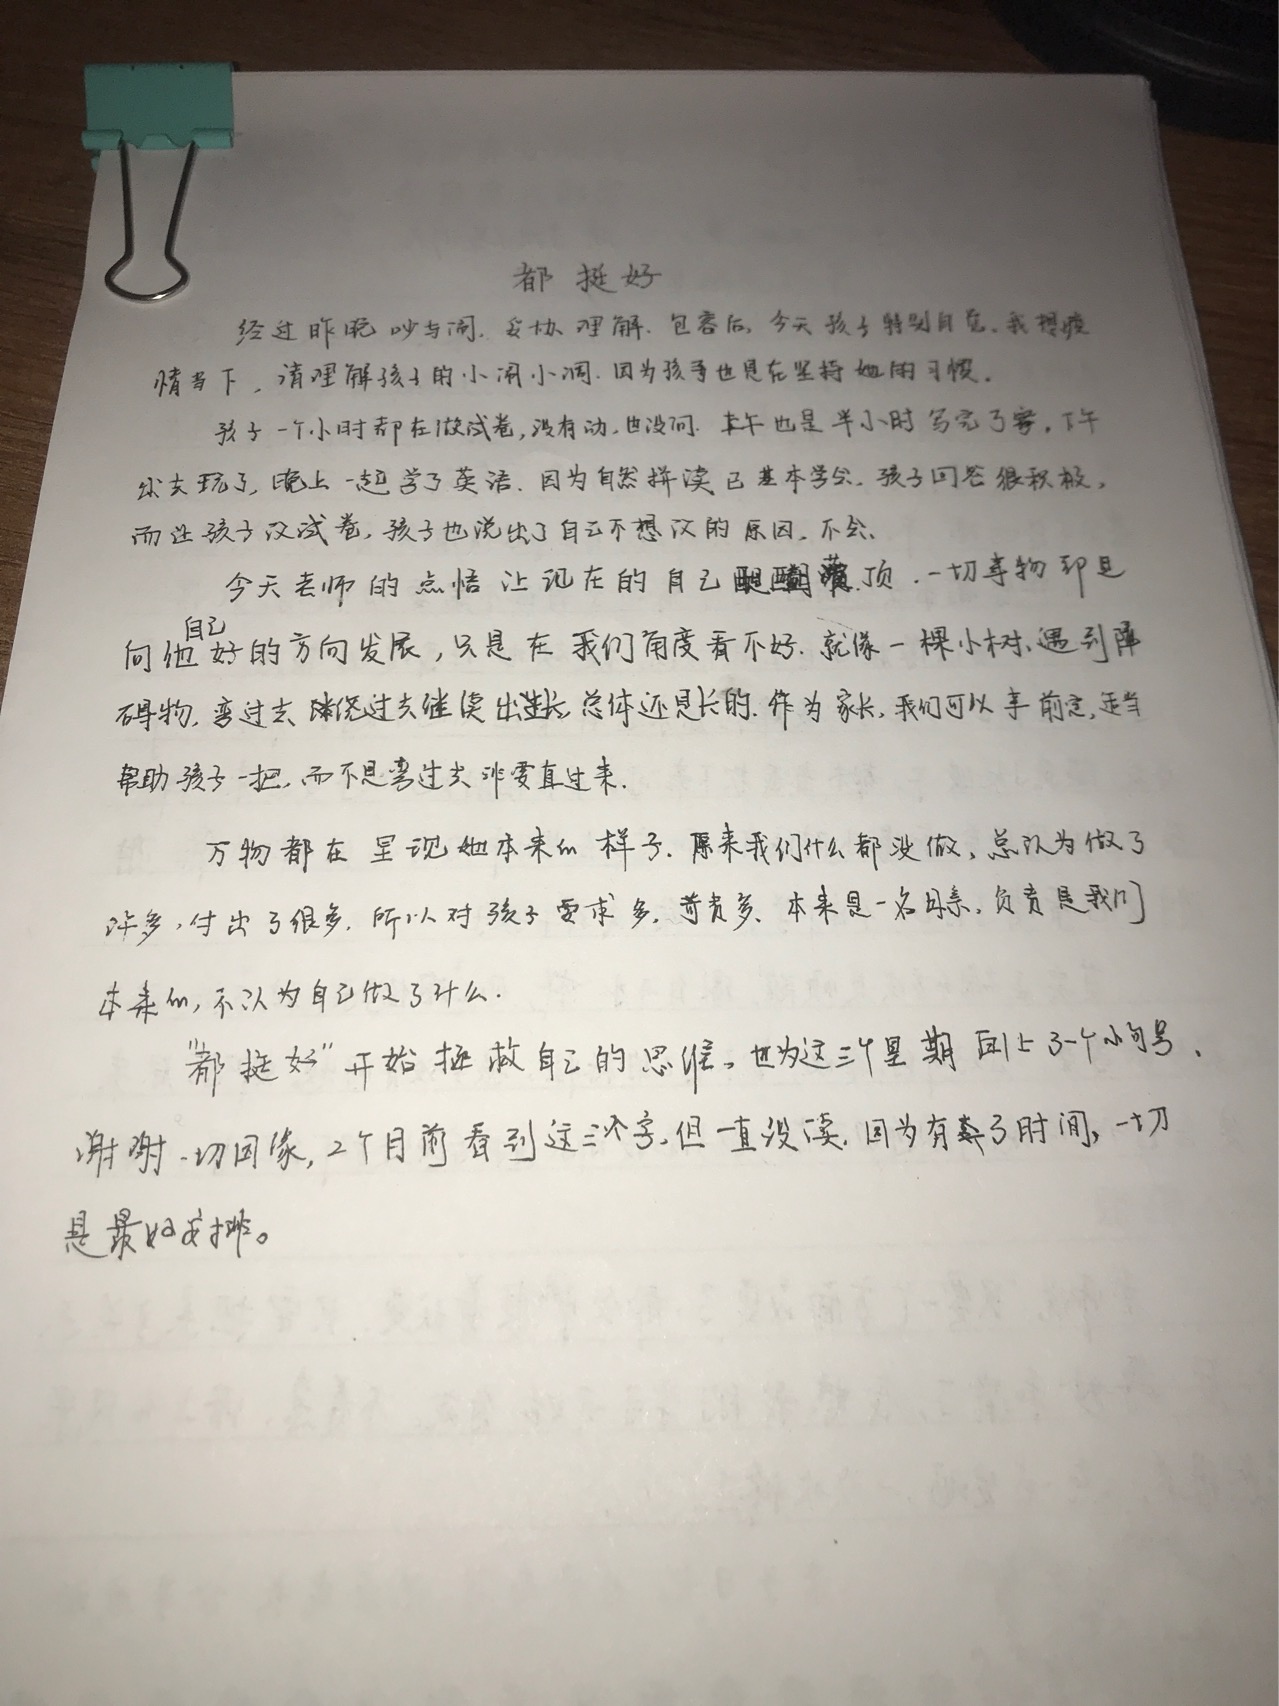 都挺好
经过昨晚吵与闹、妥协理解、包容后,今天孩子特别自觉,我想疫
情当下,请理解孩子的小闹小调.因为孩子也是在坚持她的习惯。
孩子一个小时都在做试卷,没有动,也没问.上午也是半小时写完了字,下午
出去玩了,晚上一起学了英语.因为自然拼读已基本学会,孩子回答很积极,
而让孩子改试卷,孩子也说出了自己不想改的原因,不会、
今天老师的点悟让现在的自己醍醐灌顶.一切事物都是
向他自己好的方向发展,只是在我们角度看不好.就像一棵小树,遇到障
碍物,弯过去,绕过去继续生长,总体还是长的.作为家长,我们可以事前定,适当
帮助孩子一把,而不是弯过去非要直过来.
万物都在呈现她本来的样子.原来我们什么都没做,总认为做了
许多,付出了很多.所以对孩子要求多,苛责多、本来是一名母亲,负责是我们
本来的,不认为自己做了什么.
"都挺好"开始拯救自己的思维。也为这三个星期画上了一个小句号.
谢谢一切因缘,2个月前看到这三个字,但一直没读.因为有时间,一切
是最好安排。